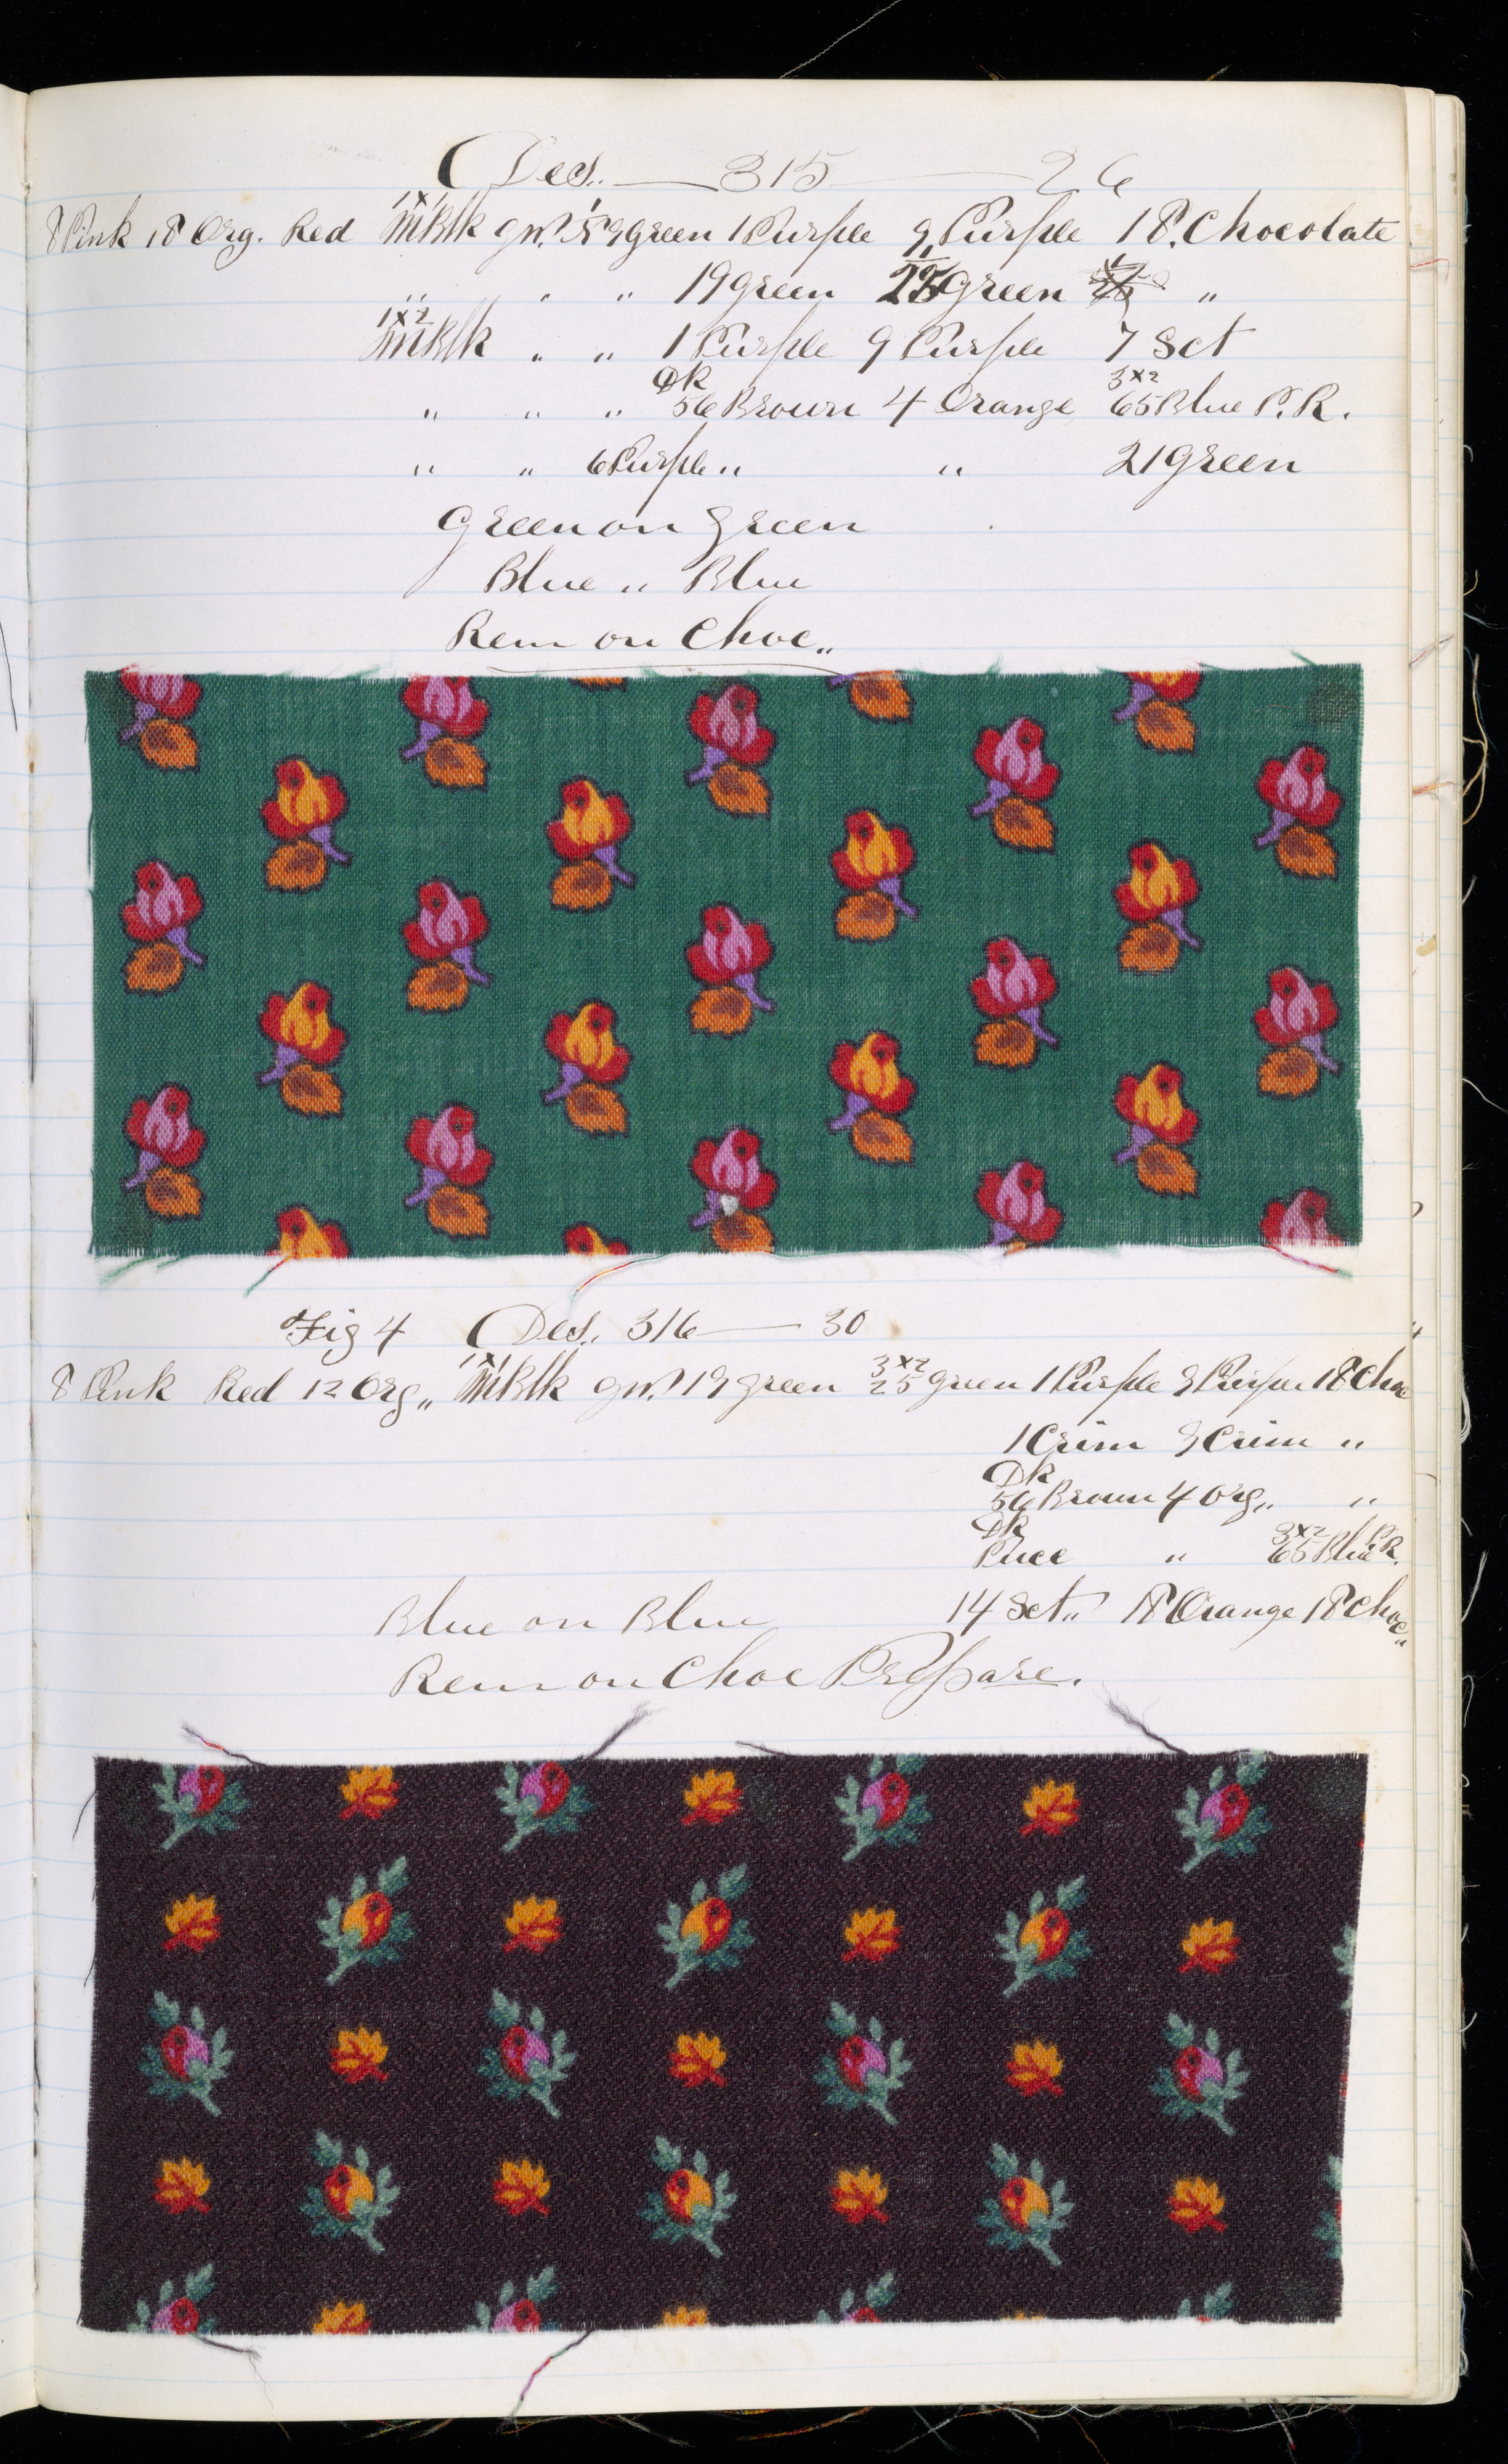 Des. 315 26
8 Pink 18 Org. Red 1x1 MBlk gw. 59 green 1 Purple 9 Purple 18. Chocolate
" " " 19 green 25 green "
1x2 MBlk " " 1 Purple 9 Purple 7 Sct
" " " Dk 56 Brown 4 Orange 3x2 65 Blue P. R.
" " 6 Purple " " 21 green
Green on Green
Blue " Blue
Rem on Choc"
Fig 4 Des. 316 30
8 Pink Red 12 Org" 1x1 MBlk gw. 19 green 3x2 25 green 1 Purple 9 Purple 18 Choc
1 Crim 9 Crim "
Dk 56 Brown 4 Org" "
Dk Puce " 3x2 65 Blue P.R.
Blue on Blue 14 Sct" 18 Orange 18 Choc"
Rem on Choc Prepare.